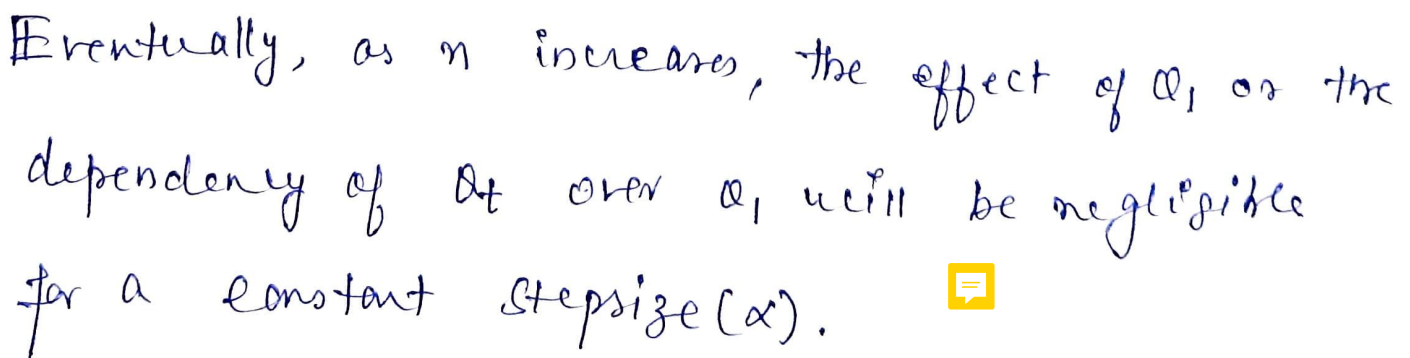 Eventually, as n increases, the effect of Q₁ or the
dependency of Qt over Q₁ will be negligible
for a constant stepsize (α).